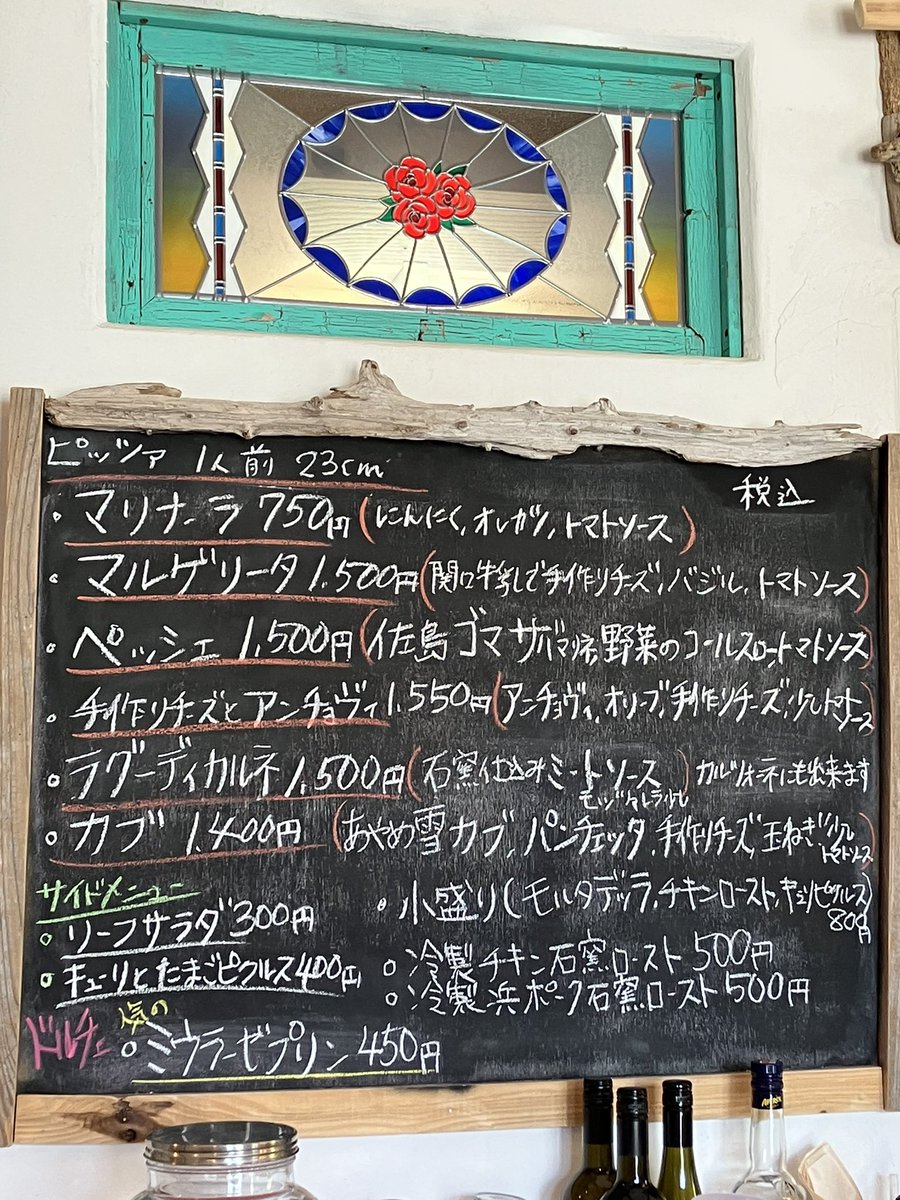 ピッツァ 1人前 23cm
税込
・マリナーラ 750円 (にんにく, オレガノ, トマトソース)
・マルゲリータ 1.500円 (関口牛乳で手作りチーズ, バジル, トマトソース)
・ペッシェ 1,500円 (佐島ゴマサバマリネ, 野菜のコールスロー, トマトソース)
・手作りチーズとアンチョヴィ 1.550円 (アンチョヴィ, オリーブ, 手作りチーズ, 少しトマトソース)
○ラグーディカルネ 1.500円 (石窯仕込みミートソース モッツァレラ少し) カルツォーネにも出来ます
○カブ 1.400円 (あやめ雪カブ, パンチェッタ, 手作りチーズ, 玉ねぎ, 少しトマトソース)
サイドメニュー
○リーフサラダ 300円
○キューリとたまごピクルス 400円
・小盛り (モルタデッラ, チキンロースト, キューリピクルス) 800円
○冷製チキン石窯ロースト 500円
○冷製浜ポーク石窯ロースト 500円
ドルチェ
人気の
○ミウラーゼプリン 450円